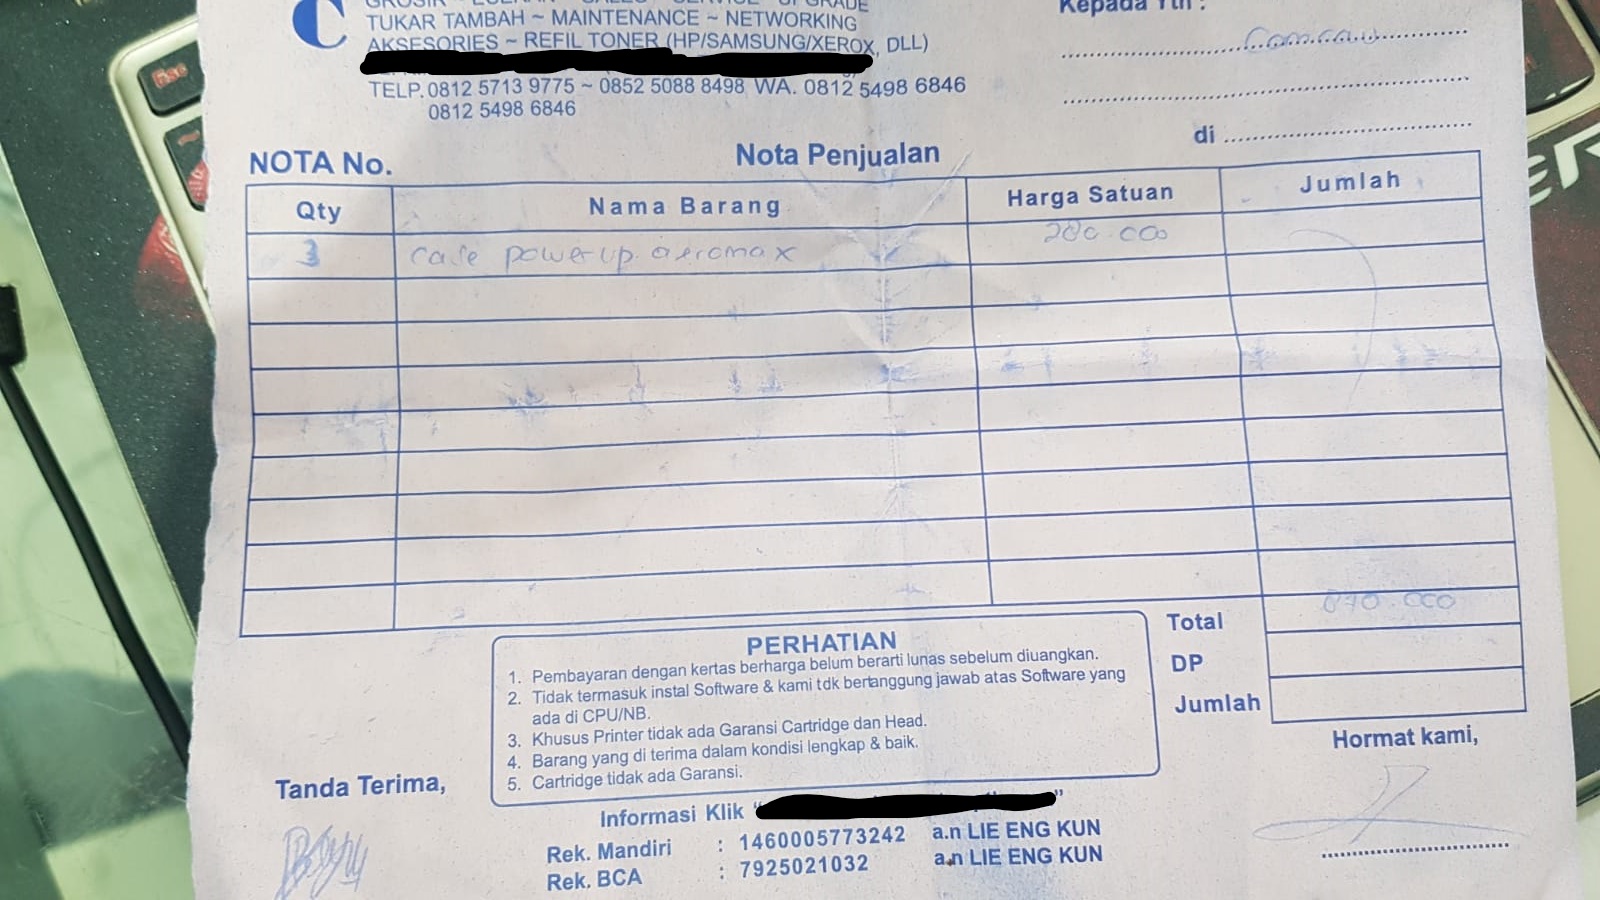 GROSIR ~ ECERAN ~ SALES ~ SERVICE ~ UPGRADE
TUKAR TAMBAH ~ MAINTENANCE ~ NETWORKING
AKSESORIES ~ REFIL TONER (HP/SAMSUNG/XEROX, DLL)
TELP. 0812 5713 9775 ~ 0852 5088 8498 WA. 0812 5498 6846
0812 5498 6846
Kepada Yth :
di
NOTA No.
Nota Penjualan
Qty Nama Barang Harga Satuan Jumlah
3 case power up aeromax
Total 870.000
DP
Jumlah
PERHATIAN
1. Pembayaran dengan kertas berharga belum berarti lunas sebelum diuangkan.
2. Tidak termasuk instal Software & kami tdk bertanggung jawab atas Software yang
ada di CPU/NB.
3. Khusus Printer tidak ada Garansi Cartridge dan Head.
4. Barang yang di terima dalam kondisi lengkap & baik.
5. Cartridge tidak ada Garansi.
Tanda Terima,
Hormat kami,
Informasi Klik “ ”
Rek. Mandiri : 1460005773242 a.n LIE ENG KUN
Rek. BCA : 7925021032 a.n LIE ENG KUN